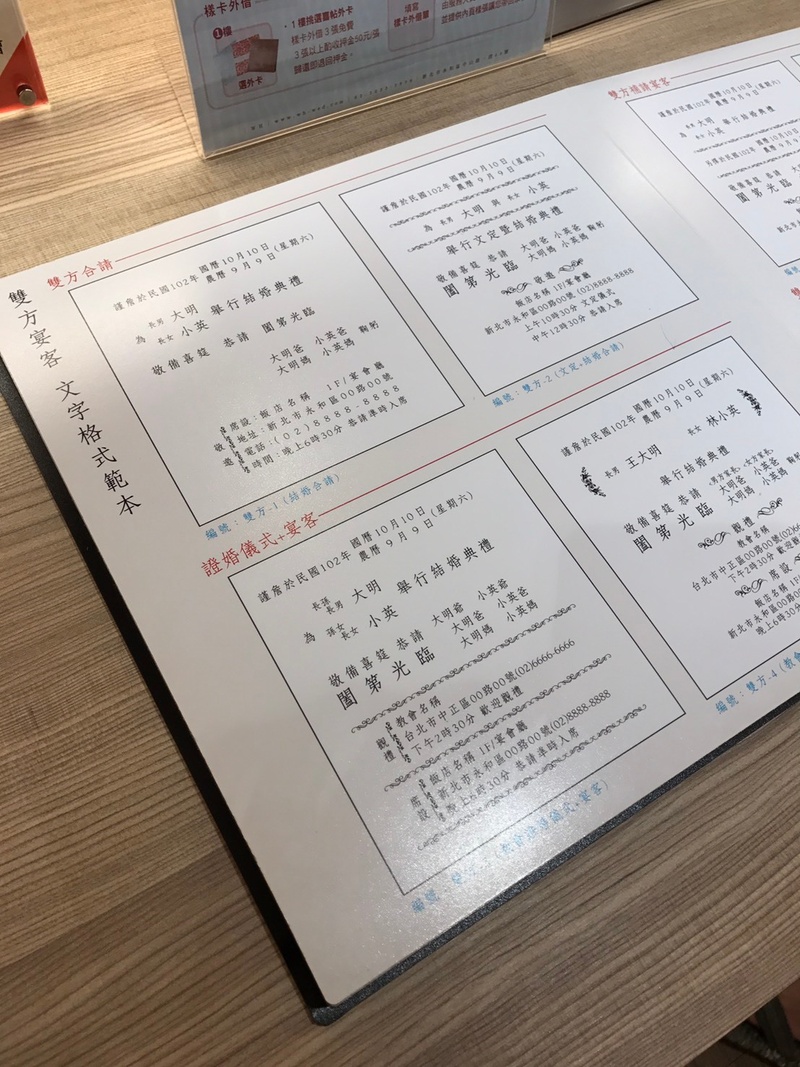 樣卡外借
1樓
選外卡
・1樓挑選喜帖外卡
樣卡外借3張免費
3張以上酌收押金50元/張
歸還即退回押金。
填寫
樣卡外借單
雙方宴客 文字格式範本
雙方合請
謹詹於民國102年 國曆10月10日 農曆9月9日 (星期六)
為 長男 大明 長女 小英 舉行結婚典禮
敬備喜筵 恭請 闔第光臨
大明爸 小英爸
大明媽 小英媽 鞠躬
敬邀
席設:飯店名稱 1F/宴會廳
地址:新北市永和區00路00號
電話:(02)8888-8888
時間:晚上6時30分 恭請準時入席
編號:雙方-1(結婚合請)
謹詹於民國102年 國曆10月10日 農曆9月9日 (星期六)
為 長男 大明 與 長女 小英
舉行文定暨結婚典禮
敬備喜筵 恭請 大明爸 小英爸
闔第光臨 大明媽 小英媽 鞠躬
敬邀
飯店名稱 1F/宴會廳
新北市永和區00路00號 (02)8888-8888
上午10時30分 文定儀式
中午12時30分 恭請入席
編號:雙方-2(文定+結婚合請)
證婚儀式+宴客
謹詹於民國102年 國曆10月10日 農曆9月9日 (星期六)
為 長孫 長男 大明 孫女 長女 小英 舉行結婚典禮
敬備喜筵 恭請 大明爺 小英爺
闔第光臨 大明爸 小英爸
大明媽 小英媽
觀禮
教會名稱
台北市中正區00路00號(02)6666-6666
下午2時30分 歡迎觀禮
席設
飯店名稱 1F/宴會廳
新北市永和區00路00號(02)8888-8888
晚上6時30分 恭請準時入席
編號
謹詹於民國102年 國曆10月10日 農曆9月9日 (星期六)
長男 王大明 長女 林小英
舉行結婚典禮
敬備喜筵 恭請
闔第光臨
大明爸 小英爸
大明媽 小英媽
觀禮
教會名稱
台北市中正區00路00號(02)
下午2時30分 歡迎觀禮
席設
飯店名稱 1F/
新北市永和區00路00號
晚上6時30分 恭請
編號:雙方-4(教會
雙方補請宴客
國曆10月10日
為 長男 大明 長女 小英 舉行結婚典禮
敬備喜筵 恭請
闔第光臨